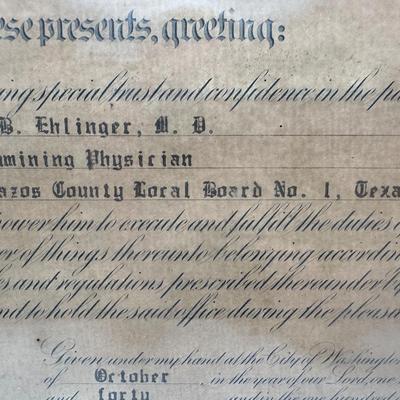 ese presents, greeting:
ing special trust and confidence in the pa
B. Ehlinger, M. D.
amining Physician
azos County Local Board No. 1, Texa
power him to execute and fulfill the duties o
er of things thereunto belonging accordin
s and regulations prescribed thereunder by
nd to hold the said office during the pleas
Given under my hand at the City of Washington
of October in the year of our Lord, one
and forty and in the one hundred